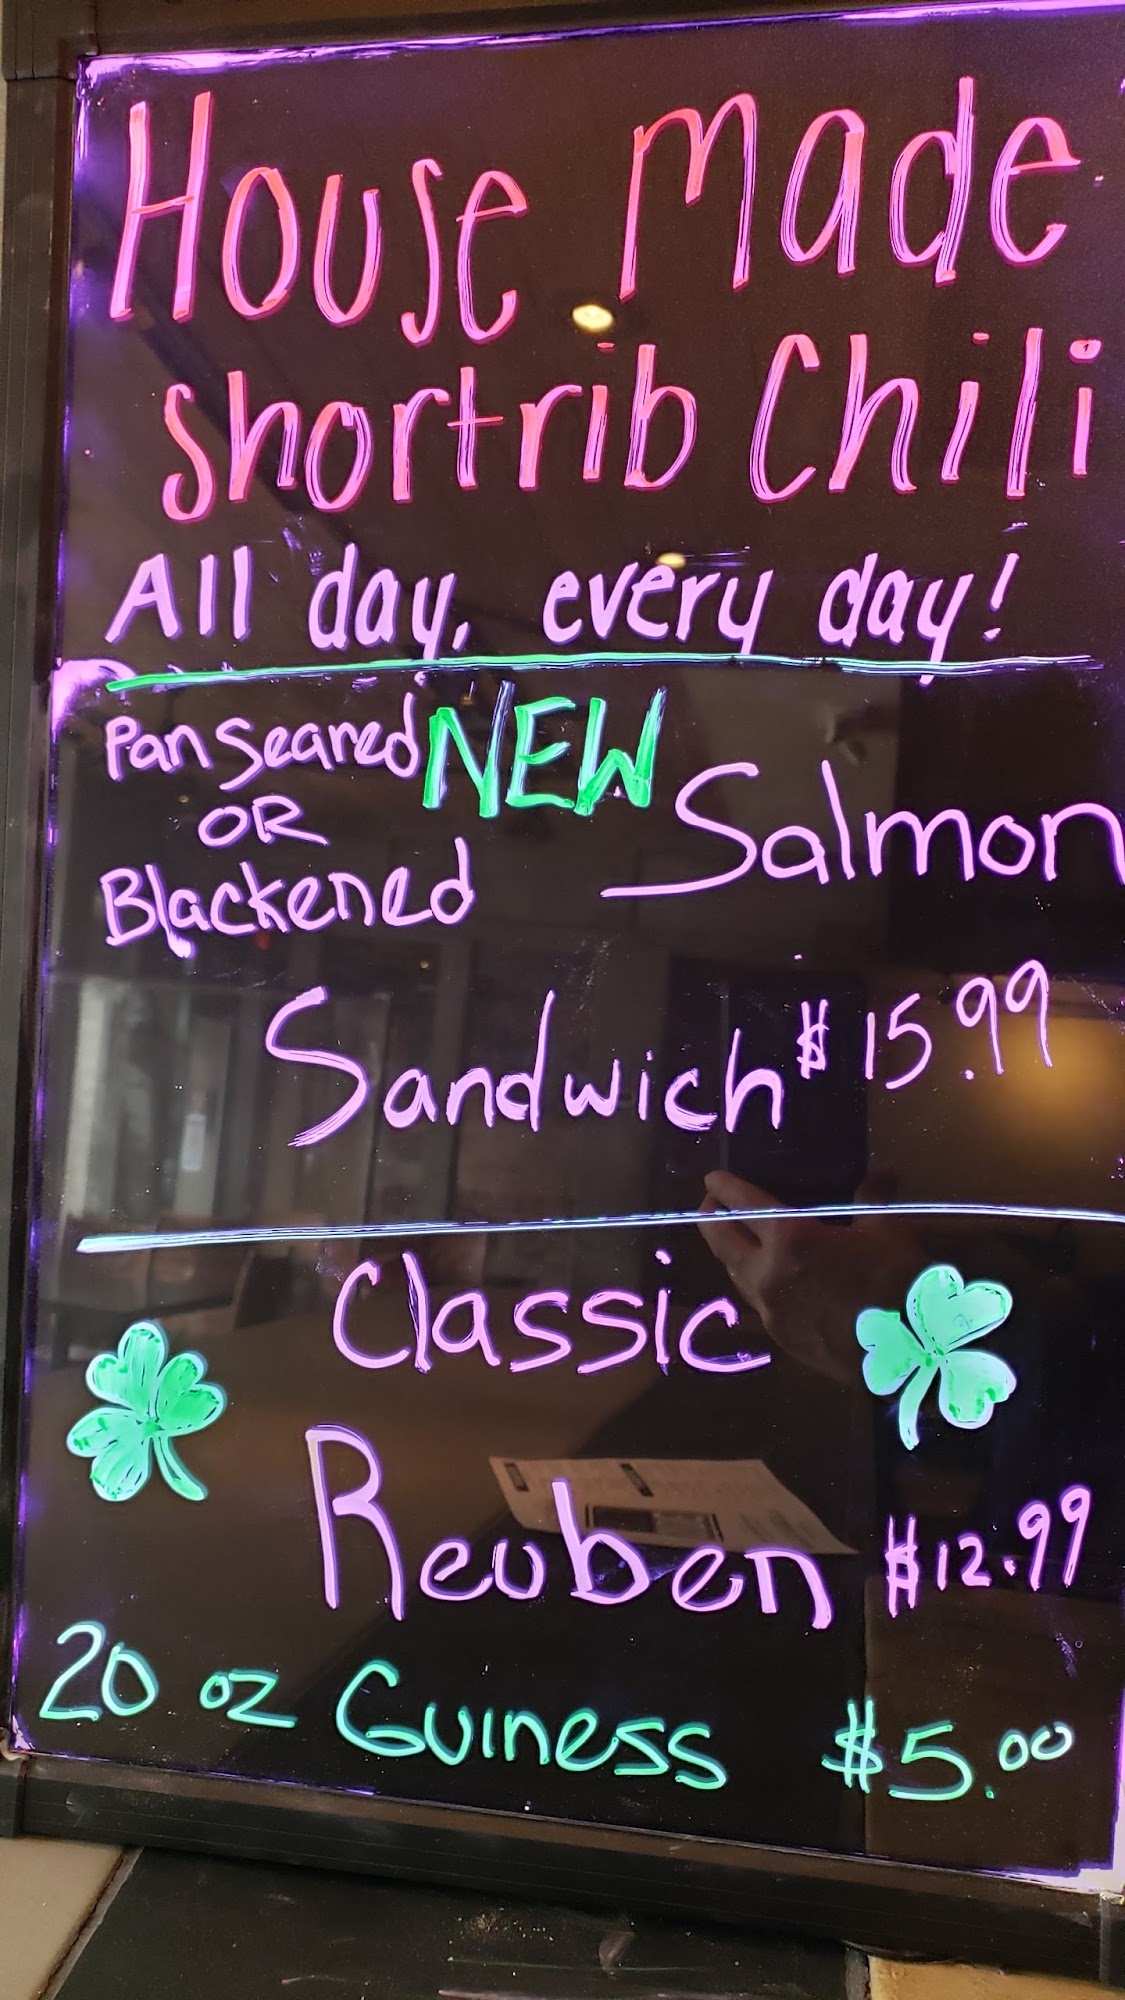 House made
Shortrib Chili
All day, every day!
Pan Seared
OR
Blackened
NEW
Salmon
Sandwich $15.99
Classic
Reuben $12.99
20 oz Guiness $5.00